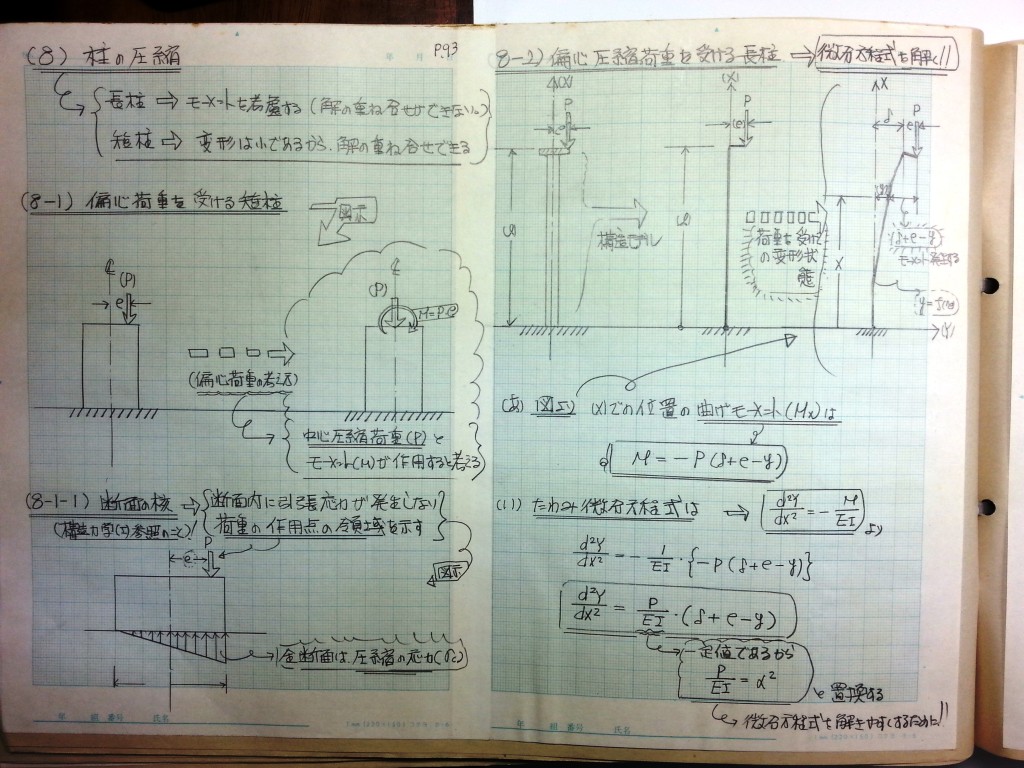 (8) 柱の圧縮
P.93
長柱 ⇨ モーメントを考慮する (解の重ね合せができない)
短柱 ⇨ 変形は小であるから、解の重ね合せできる
(8-1) 偏心荷重を受ける短柱
図示
(P)
e
(P)
M=P·e
(偏心荷重の考え方)
中心圧縮荷重(P)と
モーメント(M)が作用すると考える
(8-1-1) 断面の核 ⇨ 断面内に引張応力が発生しない
荷重の作用点の領域を示す
(構造力学(1)参照のこと)
P
e
図示
全断面は、圧縮の応力(σc)
年 組 番号 氏名
8-2) 偏心圧縮荷重を受ける長柱 ⇨ 微分方程式を解く!!
(X)
P
e
(X)
P
(e)
X
P
δ
e
構造モデル
荷重を受けての変形状態
X
(δ+e-y)
モーメント発生する
(Y)
(あ) 図示 (X)での位置の曲げモーメント(Mx)は
M = -P(δ+e-y)
(い) たわみ微分方程式は ⇨ d²y/dx² = - M/EI より
d²y/dx² = - 1/EI · {-P(δ+e-y)}
d²y/dx² = P/EI · (δ+e-y)
一定値であるから
P/EI = α² と置換する
微分方程式を解きやすくするために!!
年 組 番号 氏名